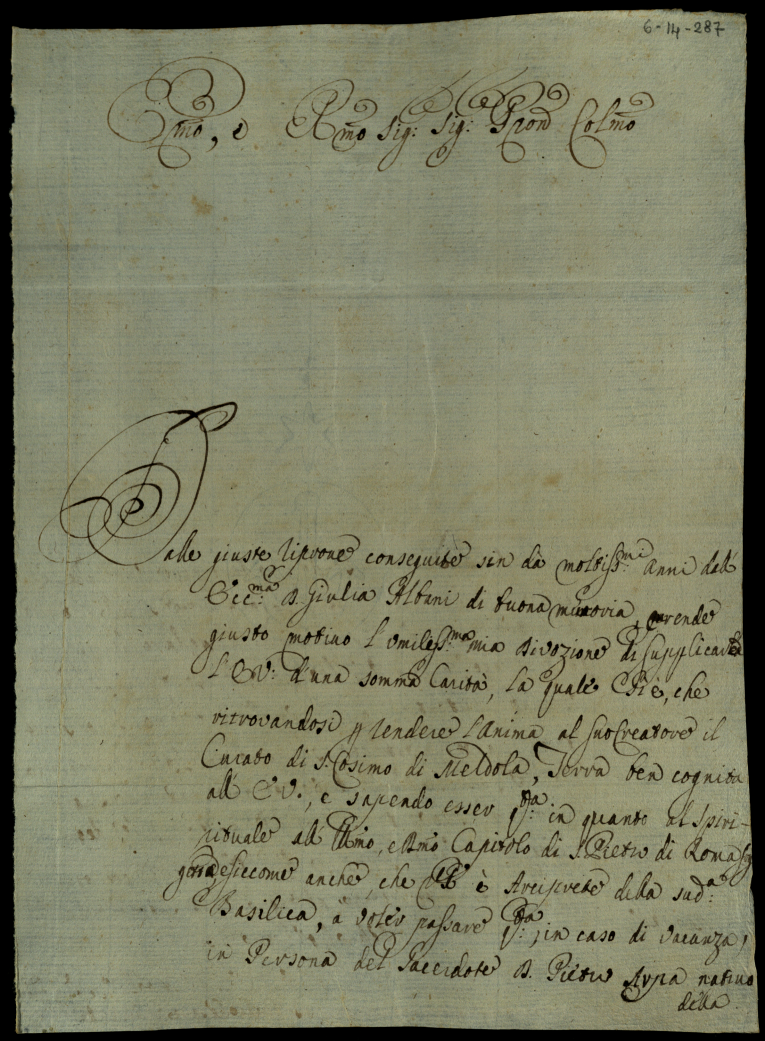 6-14-287
Emo, e Rmo Sig: Sig: Pron Colmo
Dalle giuste riprove conseguite sin dà moltiss:mi anni dall'
Ecc:ma D. Giulia Albani di buona memoria, prende
giusto motivo l'umiliss:ma mia Divozione di supplicare
l'E V: d'una somma Carità, la quale è, che
ritrovandosi p rendere l'Anima al suo Creatore il
Curato di S. Cosimo di Meldola, Terra ben cognita
all' E V., e sapendo esser q:ta in quanto al Spiri-
rituale all' Illmo, e Rmo Capitolo di S. Pietro di Roma
siccome anche, che è Arciprete della sud:a
Basilica, à voler passare q:ta, in caso di vacanza,
in Persona del Saccidote D. Pietro Arpa nativo
della